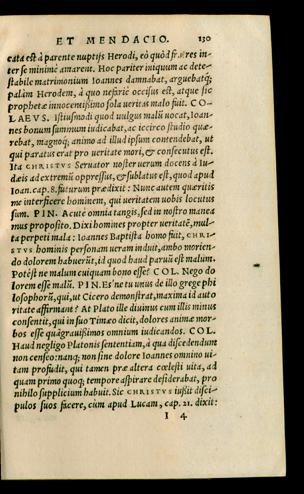 ET MENDACIO. 130
cata est à parente nuptijs Herodi, eò quòd fratres in-
ter se minimè amarent. Hoc pariter iniquum ac dete-
stabile matrimonium Ioannes damnabat, arguebatq;
palàm Herodem, à quo nefariè occisus est, atque sic
prophetæ innocentissimo sola ueritas malo fuit. CO-
LAEVS. Istiusmodi quod uulgus malũ uocat, Ioan-
nes bonum summum iudicabat, ac iccirco studio quæ-
rebat, magnoq; animo ad illud ipsum contendebat, ut
qui paratus erat pro ueritate mori, & consecutus est.
Ita CHRISTVS Seruator noster uerum docens à Iu-
dæis ad extremũ oppressus, & sublatus est, quod apud
Ioan. cap. 8. futurum prædixit: Nunc autem quæritis
me interficere hominem, qui ueritatem uobis locutus
sum. PIN. Acutè omnia tangis, sed in nostro manea
mus proposito. Dixi homines propter ueritatẽ, mul-
ta perpeti mala: Ioannes Baptista homo fuit, CHRI-
STVS hominis personam ueram induit, ambo morien-
do dolorem habuerũt, id quod haud paruũ est malum.
Potést ne malum cuiquam bono esse? COL. Nego do
lorem esse malũ. PIN. Es'ne tu unus de illo grege phi
losophorũ, qui, ut Cicero demonstrat, maxima id auto
ritate affirmant? At Plato ille diuinus cum illis minus
consentit, qui in suo Timæo dicit, dolores animæ mor-
bos esse quàm grauissimos omnium iudicandos. COL.
Haud negligo Platonis sententiam, à qua discedendum
non censeo: nanq; non sine dolore Ioannes omnino ui-
tam profudit, qui tamen præ altera cœlesti uita, ad
quam primo quoq; tempore aspirare desiderabat, pro
nihilo supplicium habuit. Sic CHRISTVS iußit disci-
pulos suos facere, cùm apud Lucam, cap. 21. dixit:
I 4